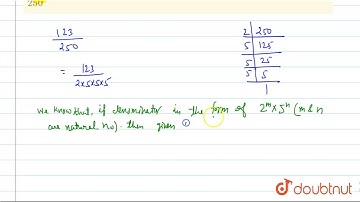 250
123
250
= 123
2×5×5×5
2 250
5 125
5 25
5 5
1
we know that, if denominator in the form of 2^m × 5^n (m & n
are natural no). then given
doubtnut